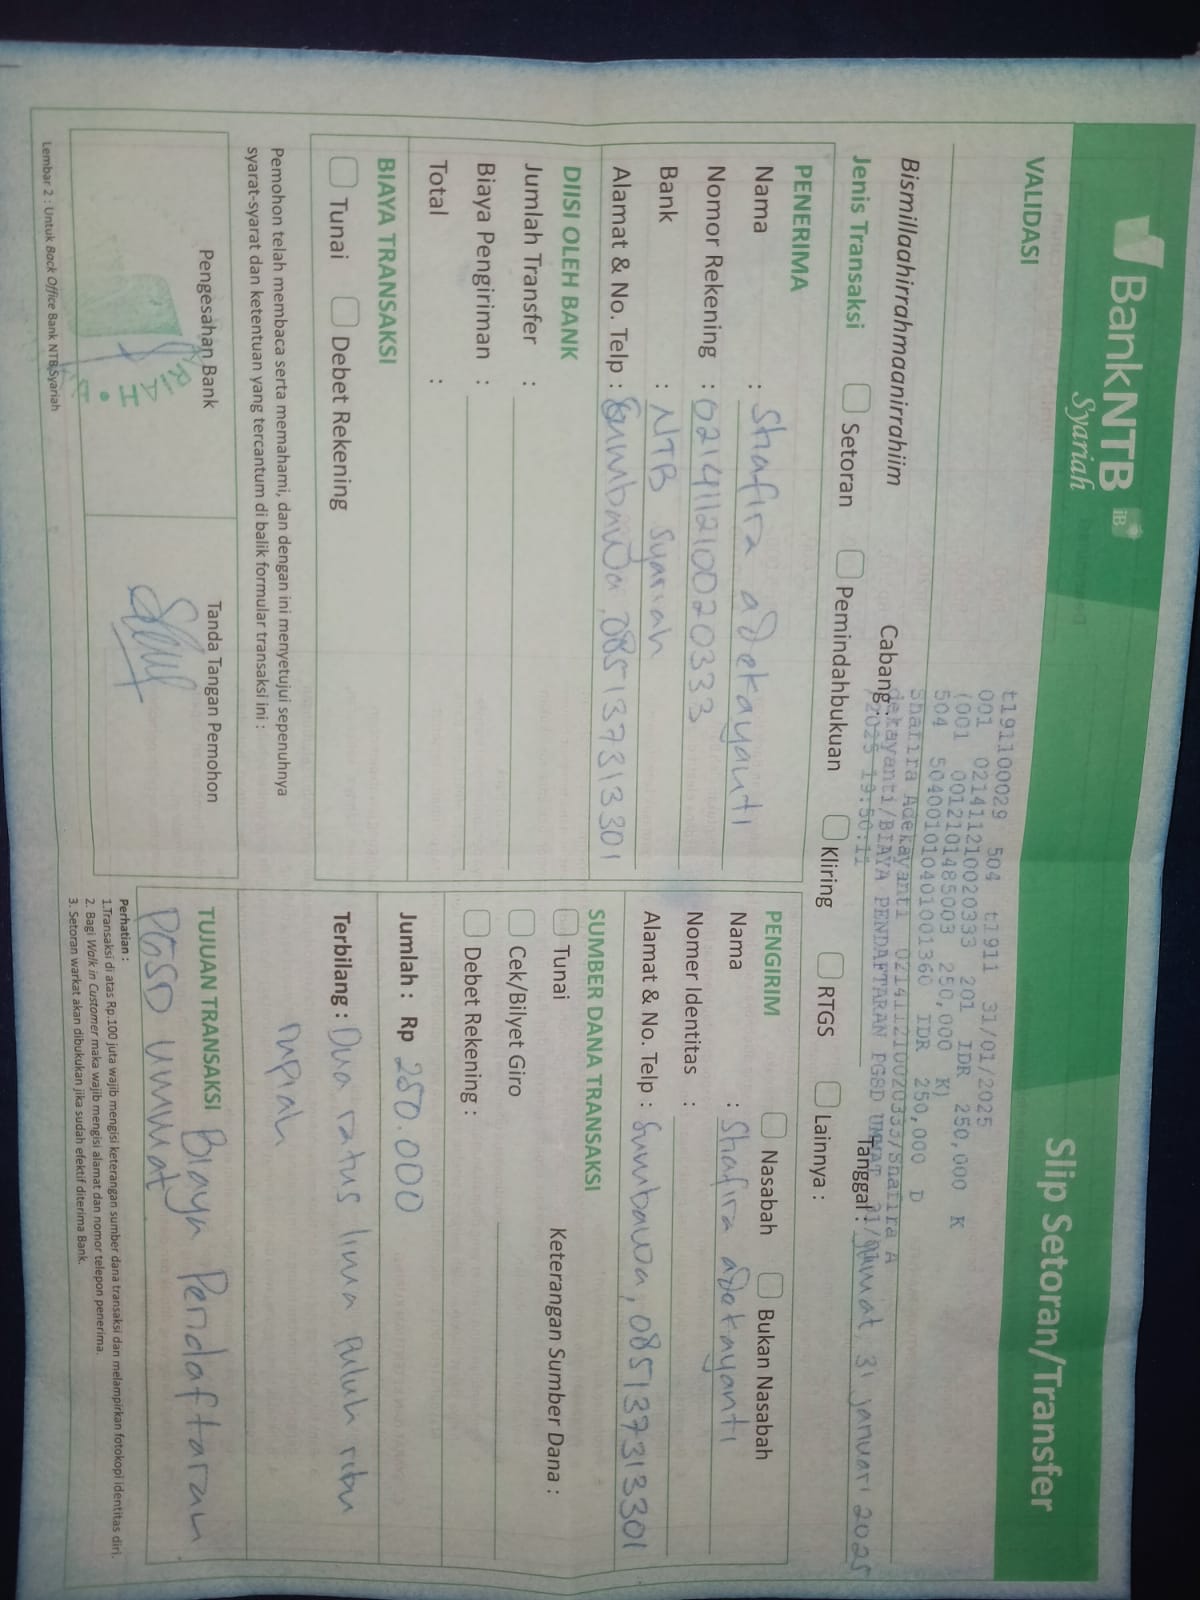 BankNTB iB
Syariah
Slip Setoran/Transfer
VALIDASI
t191100029 504 t1911 31/01/2025
001 021411210020333 201 IDR 250,000 K
(001 0012101485003 250,000 K)
504 504001010401001360 IDR 250,000 D
Shafira Adekayanti 021411210020333/Shafira A
dekayanti/BIAYA PENDAFTARAN PGSD UMMAT 31/01
/2025 19:50:11
Bismillaahirrahmaanirrahiim
Cabang :
Tanggal : Jumat, 31 januari 2025
Jenis Transaksi Setoran Pemindahbukuan Kliring RTGS Lainnya :
PENERIMA
Nama : Shafira adekayanti
Nomor Rekening : 021411210020333
Bank : NTB Syariah
Alamat & No. Telp : Sumbawa, 085137313301
PENGIRIM Nasabah Bukan Nasabah
Nama : Shafira adekayanti
Nomer Identitas :
Alamat & No. Telp : Sumbawa, 085137313301
DIISI OLEH BANK
Jumlah Transfer :
Biaya Pengiriman :
Total :
SUMBER DANA TRANSAKSI
Tunai Keterangan Sumber Dana :
Cek/Bilyet Giro
Debet Rekening :
BIAYA TRANSAKSI
Tunai Debet Rekening
Jumlah : Rp 250.000
Terbilang : Dua ratus lima puluh ribu
rupiah
Pemohon telah membaca serta memahami, dan dengan ini menyetujui sepenuhnya
syarat-syarat dan ketentuan yang tercantum di balik formular transaksi ini :
Pengesahan Bank
Tanda Tangan Pemohon
TUJUAN TRANSAKSI Biaya Pendaftaran
PGSD UMMat
Perhatian :
1.Transaksi di atas Rp.100 juta wajib mengisi keterangan sumber dana transaksi dan melampirkan fotokopi identitas diri.
2. Bagi Walk in Customer maka wajib mengisi alamat dan nomor telepon penerima.
3. Setoran warkat akan dibukukan jika sudah efektif diterima Bank.
Lembar 2 : Untuk Back Office Bank NTB Syariah